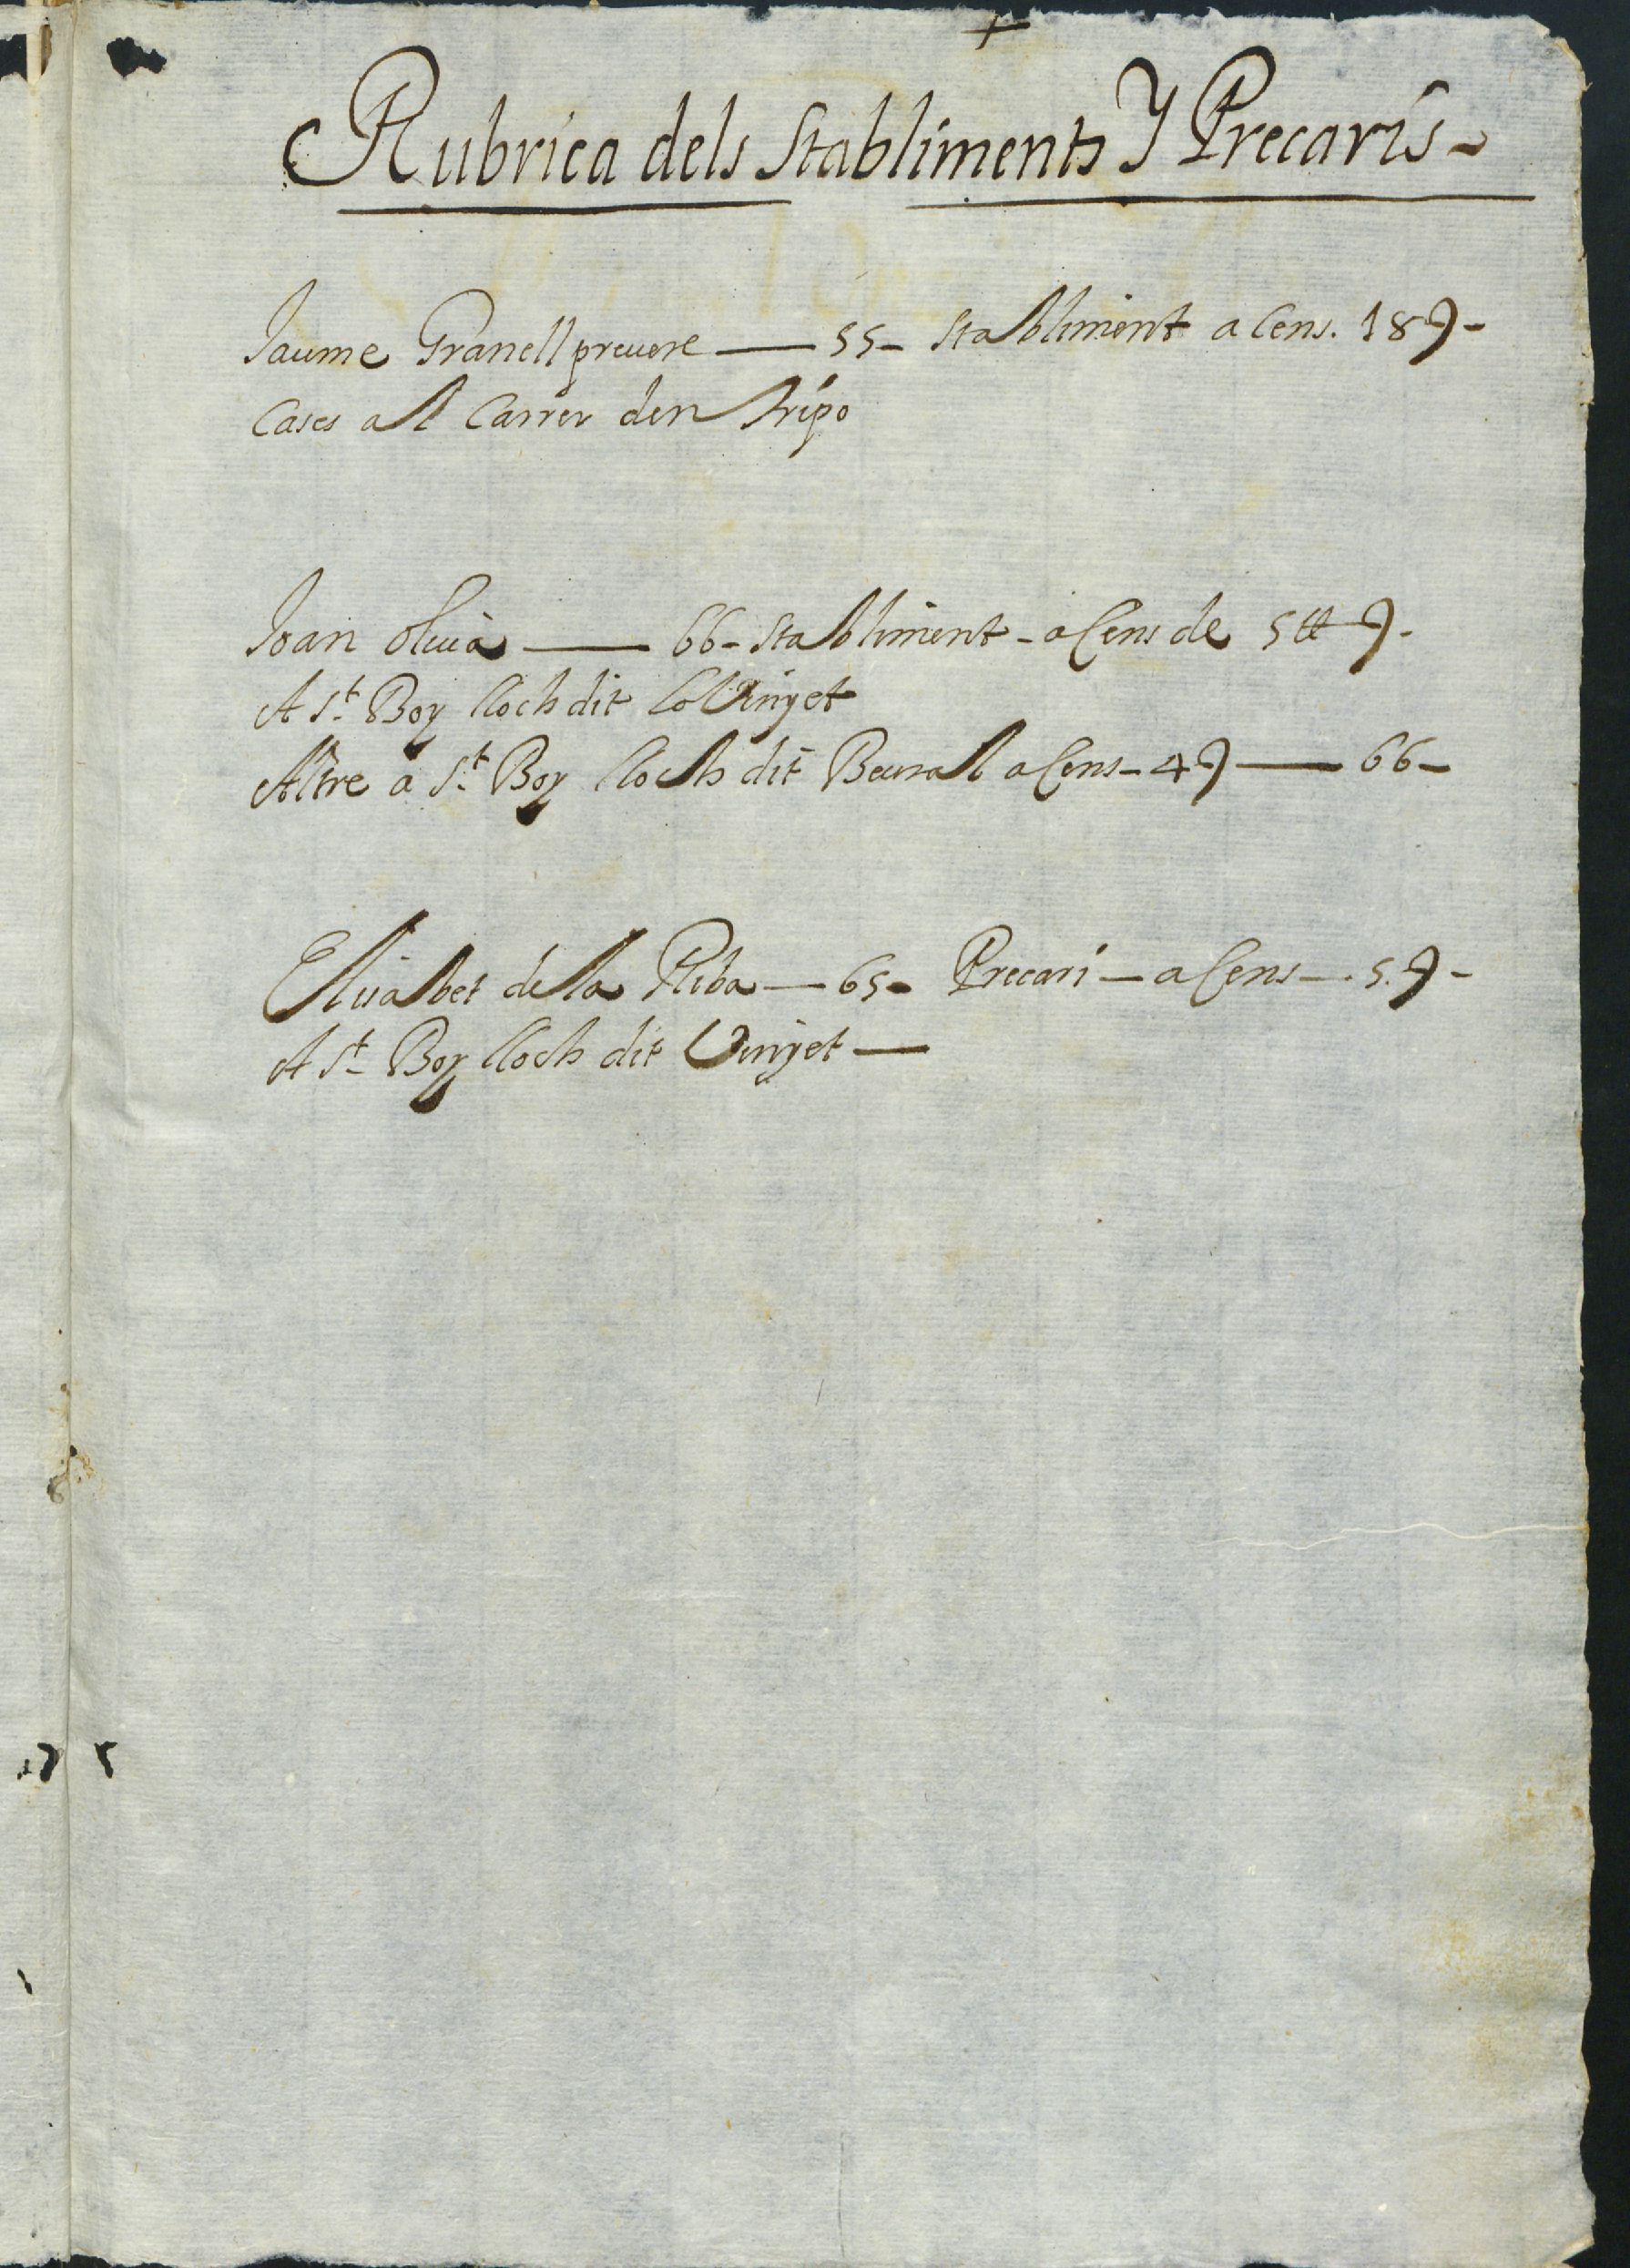 +
Rubrica dels Stabliments Y Precaris -
Jaume Granell prevere —— 55 - Stabliment a Cens. 18 ƍ -
Cases al Carrer den Tripo
Joan oliuà —— 66 - Stabliment - a Cens de 5 tt ƍ -
A St. Boy lloch dit lo Vinyet
Altre a St. Boy lloch dit Beural a Cens - 4 ƍ —— 66 -
Elisabet de la Riba — 65 - Precari — a Cens — 5. ƍ -
A St. Boy lloch dit Vinyet —